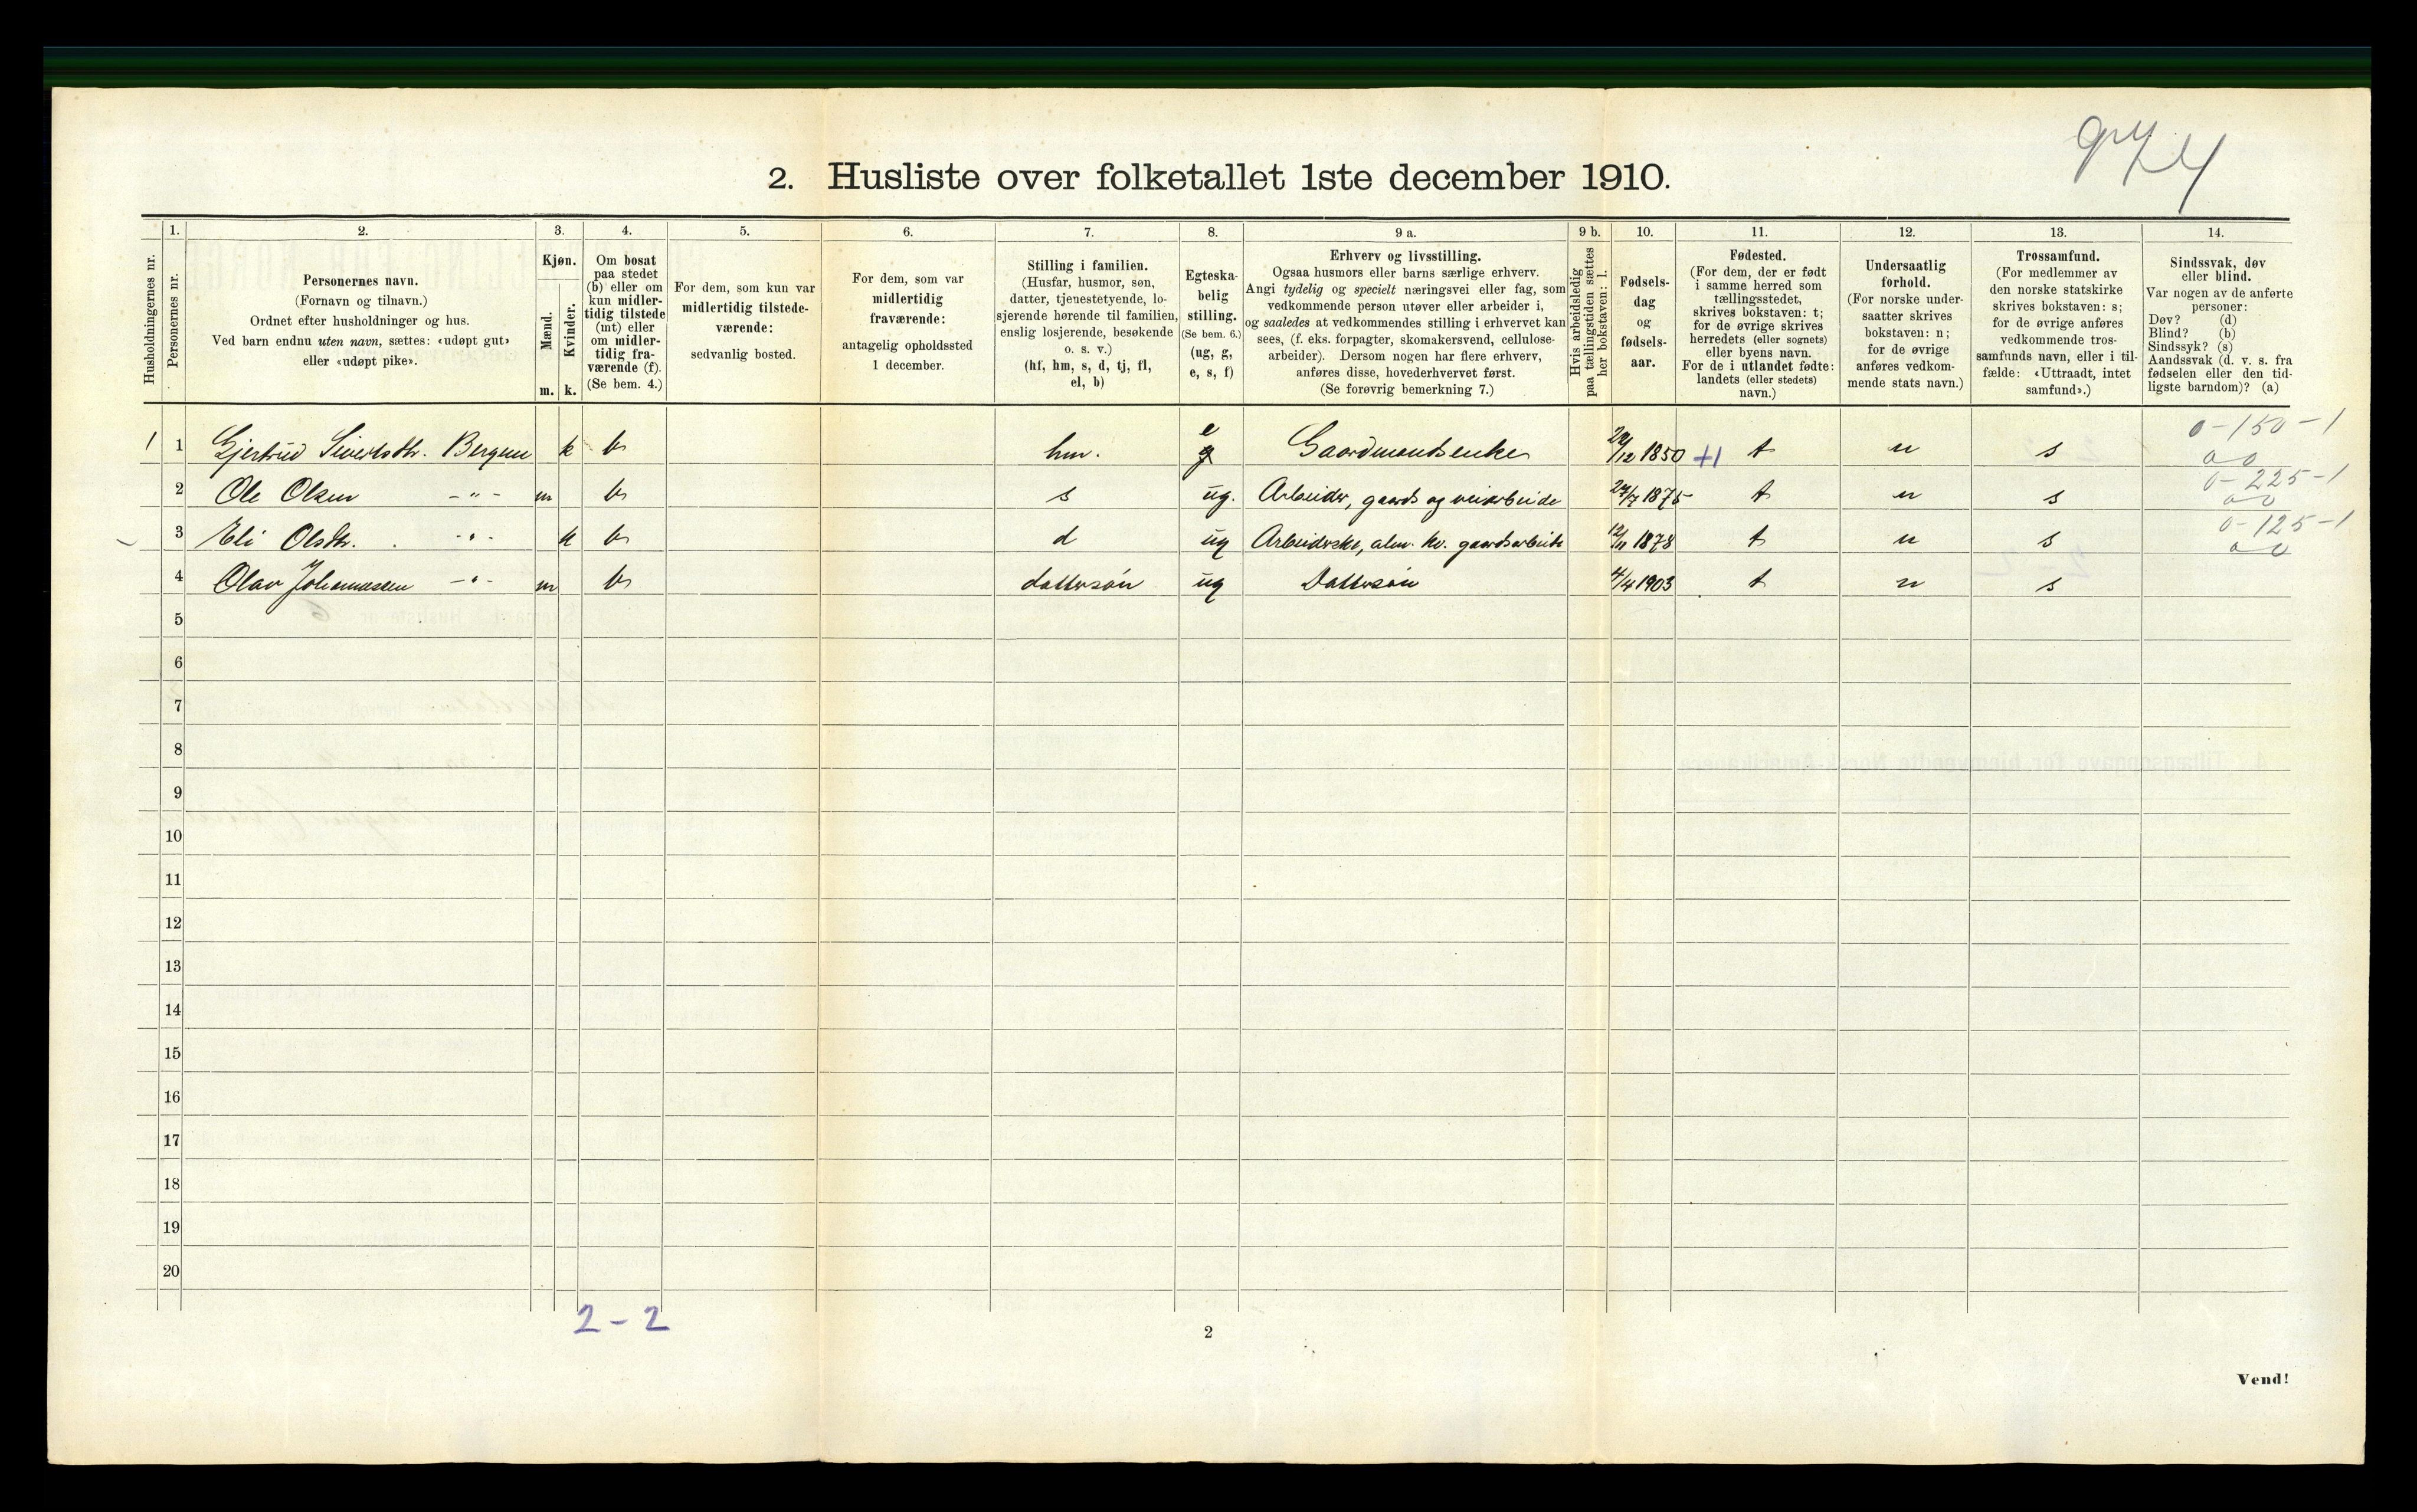 2. Husliste over folketallet 1ste december 1910.
Husholdningernes nr.
1.
Personernes nr.
2.
Personernes navn.
(Fornavn og tilnavn.)
Ordnet efter husholdninger og hus.
Ved barn endnu uten navn, sættes: «udøpt gut»
eller «udøpt pike».
3.
Kjøn.
Mænd.
Kvinder.
m. k.
4.
Om bosat
paa stedet
(b) eller om
kun midler-
tidig tilstede
(mt) eller
om midler-
tidig fra-
værende (f).
(Se bem. 4.)
5.
For dem, som kun var
midlertidig tilstede-
værende:
sedvanlig bosted.
6.
For dem, som var
midlertidig
fraværende:
antagelig opholdssted
1 december.
7.
Stilling i familien.
(Husfar, husmor, søn,
datter, tjenestetyende, lo-
sjerende hørende til familien,
enslig losjerende, besøkende
o. s. v.)
(hf, hm, s, d, tj, fl,
el, b)
8.
Egteska-
belig
stilling.
(Se bem. 6.)
(ug, g,
e, s, f)
9 a.
Erhverv og livsstilling.
Ogsaa husmors eller barns særlige erhverv.
Angi tydelig og specielt næringsvei eller fag, som
vedkommende person utøver eller arbeider i,
og saaledes at vedkommendes stilling i erhvervet kan
sees, (f. eks. forpagter, skomakersvend, cellulose-
arbeider). Dersom nogen har flere erhverv,
anføres disse, hovederhvervet først.
(Se forøvrig bemerkning 7.)
9 b.
Hvis arbeidsledig
paa tællingstiden sættes
her bokstaven: l.
10.
Fødsels-
dag
og
fødsels-
aar.
11.
Fødested.
(For dem, der er født
i samme herred som
tællingsstedet,
skrives bokstaven: t;
for de øvrige skrives
herredets (eller sognets)
eller byens navn.
For de i utlandet fødte:
landets (eller stedets)
navn.)
12.
Undersaatlig
forhold.
(For norske under-
saatter skrives
bokstaven: n;
for de øvrige
anføres vedkom-
mende stats navn.)
13.
Trossamfund.
(For medlemmer av
den norske statskirke
skrives bokstaven: s;
for de øvrige anføres
vedkommende tros-
samfunds navn, eller i til-
fælde: «Uttraadt, intet
samfund».)
14.
Sindssvak, døv
eller blind.
Var nogen av de anførte
personer:
Døv? (d)
Blind? (b)
Sindssyk? (s)
Aandssvak (d. v. s. fra
fødselen eller den tid-
ligste barndom)? (a)
0-150-1
1 1 Gjertrud Sivertsdtr. Bergem k b hm. e g Gaardmandsenke 12 1850 +1 t n s 00
0-225-1
2 Ole Olsen -"- m b s ug. Arbeider, gaards og veiarbeide 27/7 1875 t n s 00
0-125-1
3 Eli Olsdtr. -"- k b d ug Arbeiderske, alm. kv. gaardsarbeide 12/11 1878 t n s 00
4 Olav Johannessen -"- m b dattersøn ug Dattersøn 4/4 1903 t n s
5
6
7
8
9
10
11
12
13
14
15
16
17
18
19
20
2-2
2
Vend!